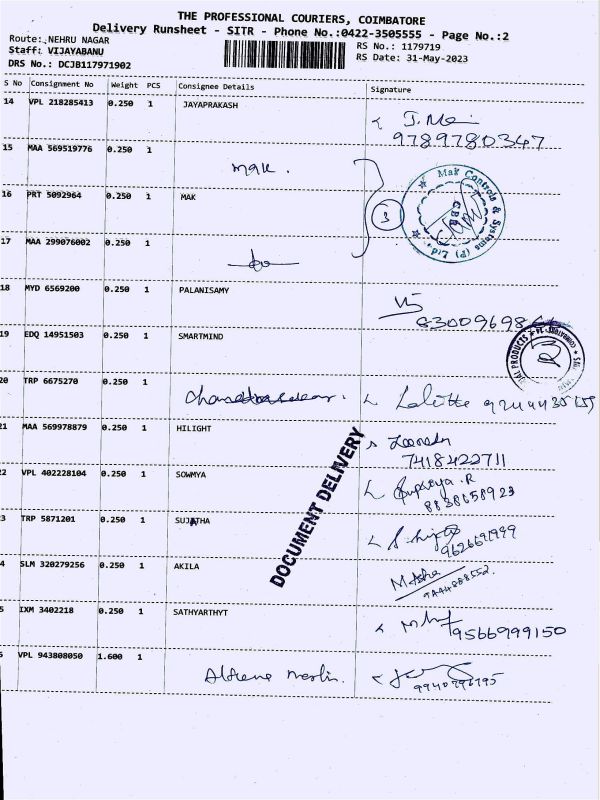 THE PROFESSIONAL COURIERS, COIMBATORE
Delivery Runsheet - SITR - Phone No.:0422-3505555 - Page No.:2
Route: NEHRU NAGAR
Staff: VIJAYABANU
DRS No.: DCJB117971902
RS No.: 1179719
RS Date: 31-May-2023
S No Consignment No Weight PCS Consignee Details Signature
14 VPL 218285413 0.250 1 JAYAPRAKASH
9789780347
15 MAA 569519776 0.250 1 mak.
16 PRT 5092964 0.250 1 MAK
3
Mak Controls & Systems (P) Ltd.
17 MAA 299076002 0.250 1
18 MYD 6569200 0.250 1 PALANISAMY
19 EDQ 14951503 0.250 1 SMARTMIND
20 TRP 6675270 0.250 1
21 MAA 569978879 0.250 1 HILIGHT
7418422711
2 VPL 402228104 0.250 1 SOWMYA
8838658923
3 TRP 5871201 0.250 1 SUJATHA
4 SLM 320279256 0.250 1 AKILA
5 IXM 3402218 0.250 1 SATHYARTHYT
9566999150
VPL 943808050 1.600 1
DOCUMENT DELIVERY